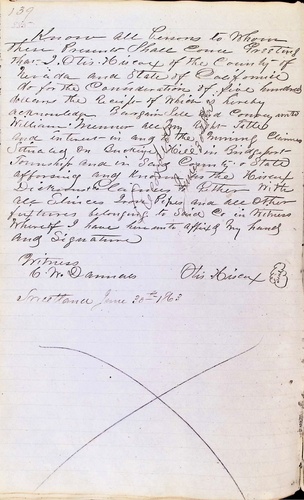 139
Know all Persons to Whom
These Presents Shall Come Greeting
That I Otis Hiscox of the County of
Nevada and State of California
do for the Consideration of five hundred
the Receipt of Which is hereby
acknowledge Bargain Sell and Convey unto
William all my Right Title
and Interest in and to the Mining Claims
Situated on Hill in Bridgeport
Township and in Said County & State
and Known as the Hiscox
Dickinson Claims to Gether With
all Sluices Iron Pipes and all other
fixtures belonging to Said Co in Witness
Whereof I have hereunto affixed my hand
and Signature
Witness
C. W. Daniels Otis Hiscox
June 30th 1863